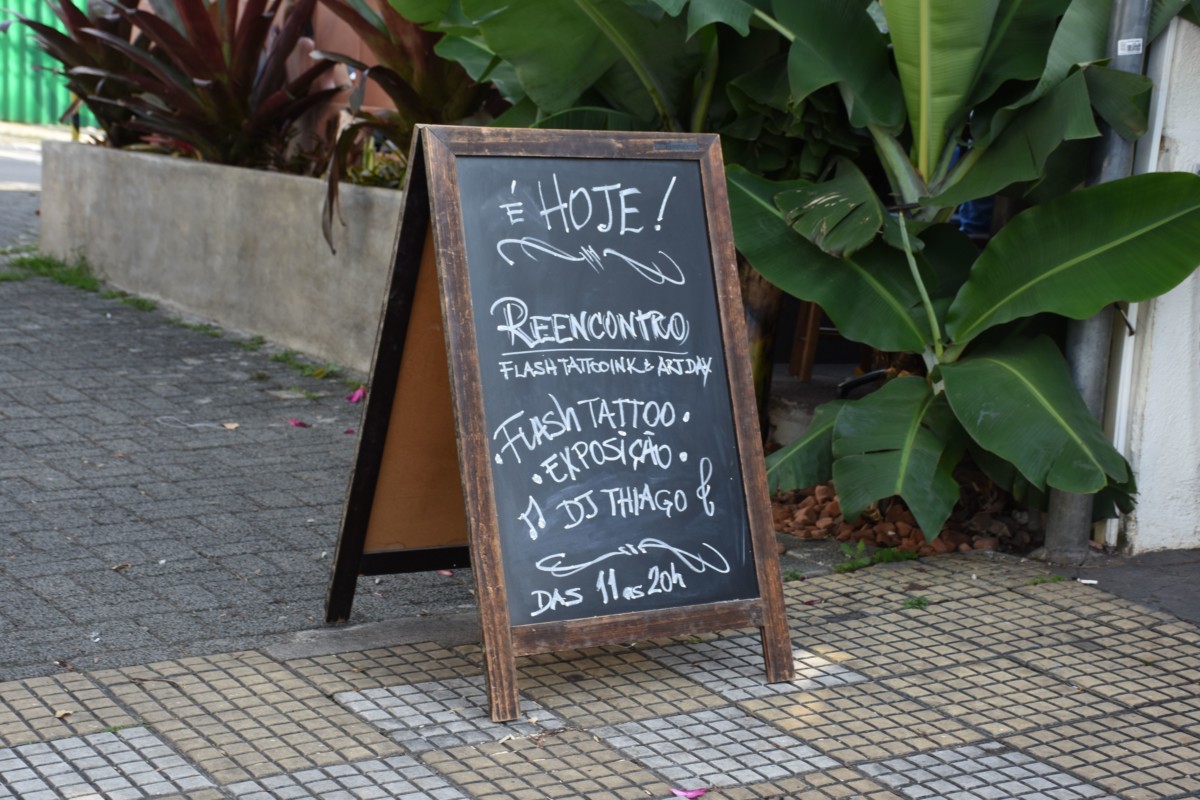 É HOJE!
REENCONTRO
FLASH TATTOO INK & ART DAY
• FLASH TATTOO •
• EXPOSIÇÃO •
DJ THIAGO
DAS 11 as 20h